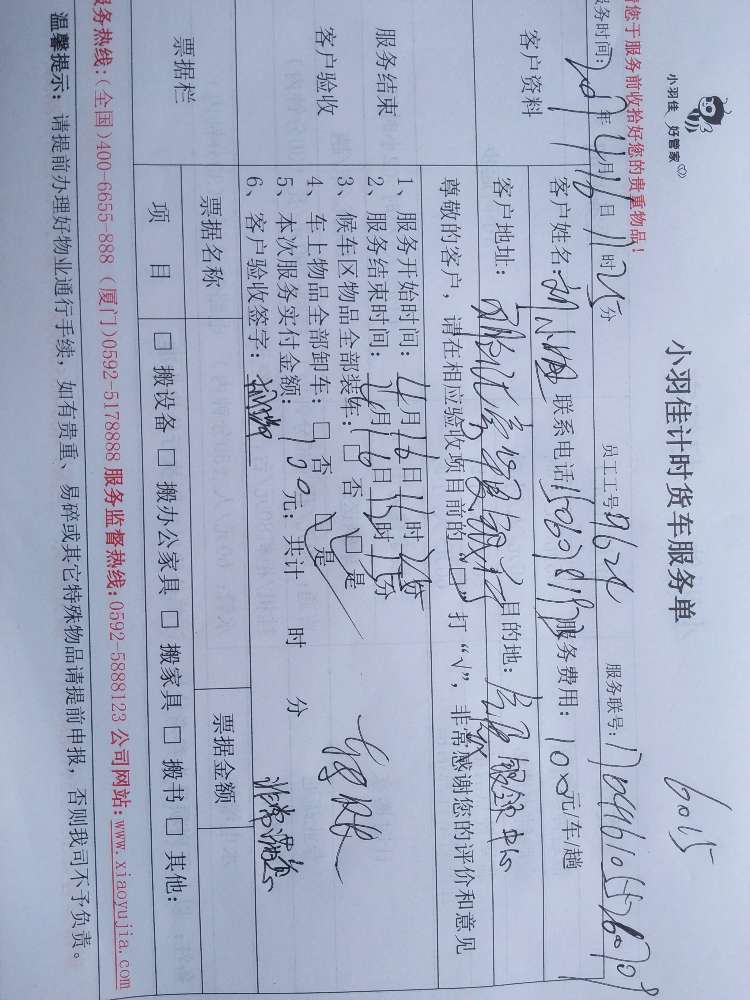 小羽佳 好管家
小羽佳计时货车服务单
6015
您于服务前收拾好您的贵重物品！
服务时间：2017年4月16日11时25分 员工工号：9624 服务联号：
客户资料
客户姓名： 联系电话： 服务费用：100元/车/趟
客户地址： 目的地：
尊敬的客户，请在相应验收项目前的“□”打“√”，非常感谢您的评价和意见
服务结束
客户验收
1、服务开始时间：4月16日11时25分
2、服务结束时间：4月16日
3、候车区物品全部装车：□ 否 □ 是
4、车上物品全部卸车：□ 否 □ 是
5、本次服务实付金额：100元；共计 时 分
6、客户验收签字：
非常满意
票据栏
票据名称 票据金额
项 目 □ 搬设备 □ 搬办公家具 □ 搬家具 □ 搬书 □ 其他：
服务热线：(全国)400-6655-888 (厦门)0592-5178888 服务监督热线：0592-5888123 公司网站：www.xiaoyujia.com
温馨提示：请提前办理好物业通行手续，如有贵重、易碎或其它特殊物品请提前申报，否则我司不予负责。